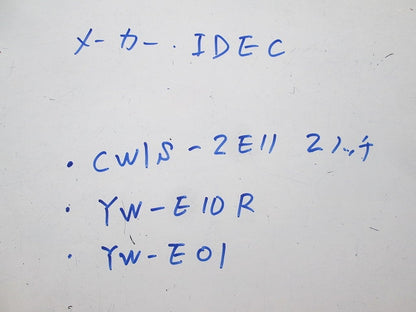 メーカー. IDEC
・CW1S-2E11 2ノッチ
・YW-E10R
・YW-E01